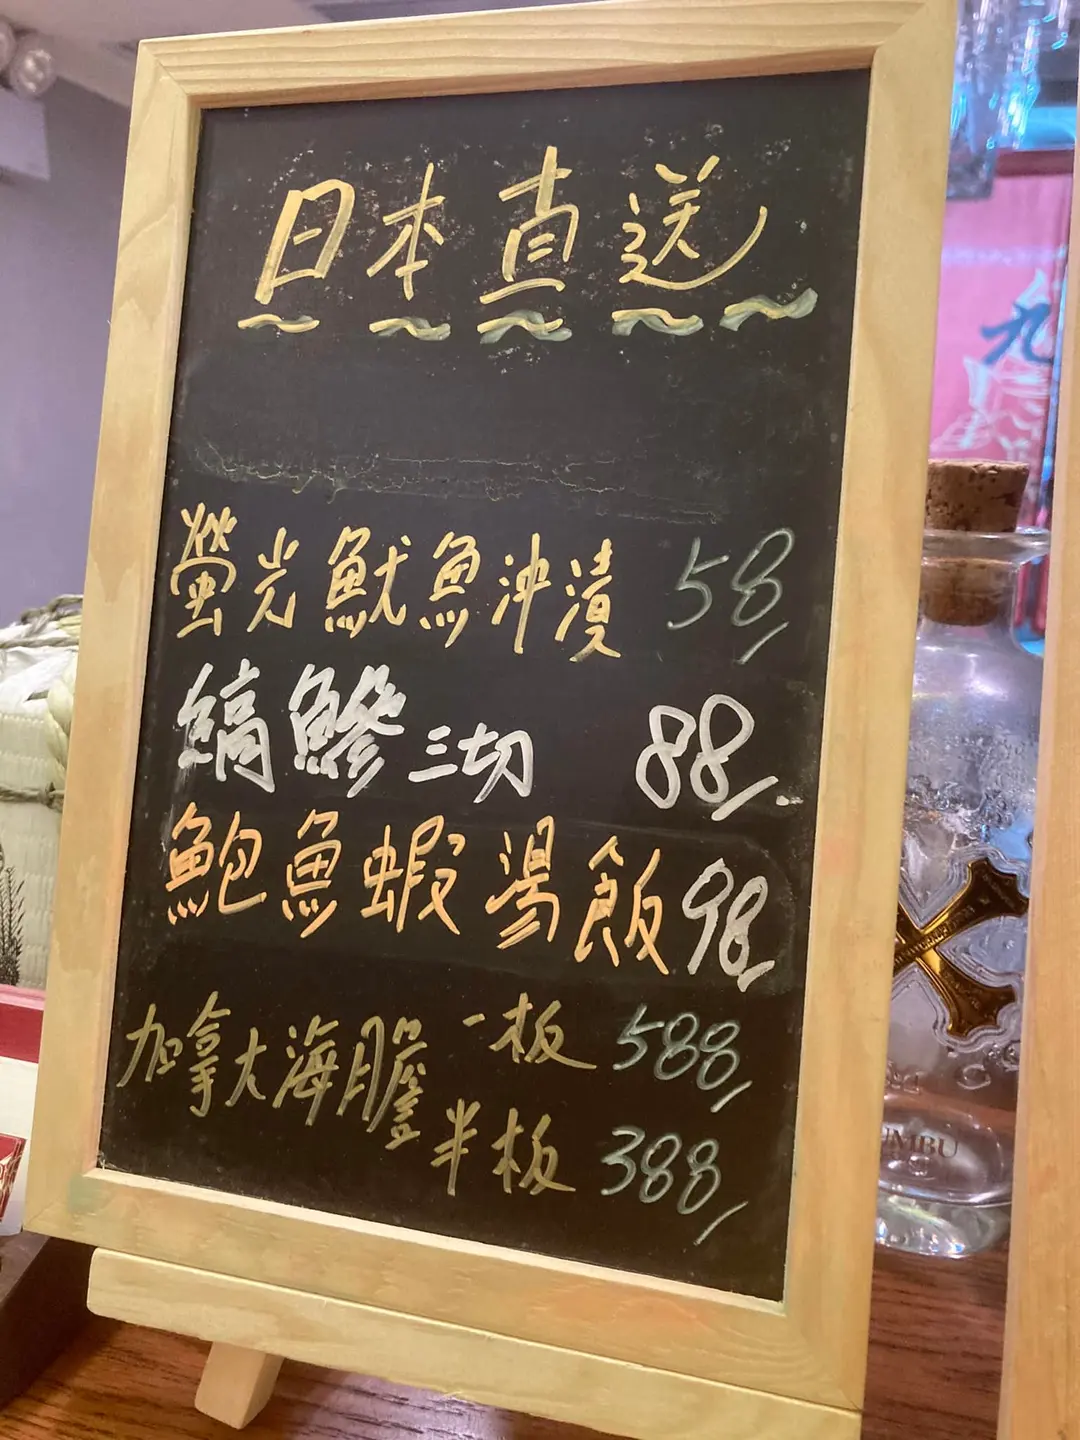 日本直送
螢光魷魚沖漬 58/
縞鰺三切 88/.
鮑魚蝦湯飯 98/
加拿大海膽 一板 588/
半板 388/
九
UMBU